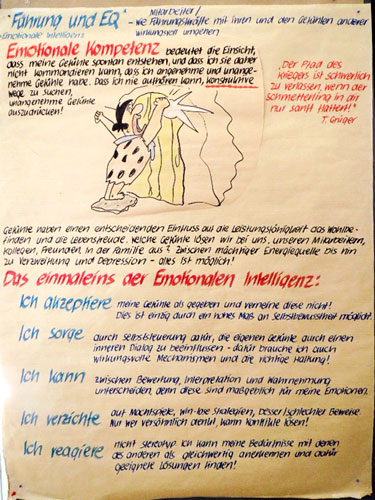 "Führung und EQ"
Mitarbeiter/
- wie Führungskräfte mit ihren und den Gefühlen anderer
wirkungsvoll umgehen
=Emotionale Intelligenz
Emotionale Kompetenz bedeutet die Einsicht,
dass meine Gefühle spontan entstehen, und dass ich sie daher
nicht kommandieren kann, dass ich angenehme und unange-
nehme Gefühle habe. Dass ich nie aufhören kann, konstruktive
Wege zu suchen,
unangenehme Gefühle
auszudrücken!
"Der Pfad des
Kriegers ist schwerlich
zu verlassen, wenn der
Schmetterling in dir
nur sanft flattert!"
T. Grüger
Gefühle haben einen entscheidenden Einfluss auf die Leistungsfähigkeit das Wohlbe-
finden und die Lebensfreude. Welche Gefühle lösen wir bei uns, unseren Mitarbeitern,
Kollegen, Freunden, in der Familie aus? Zwischen mächtiger Energiequelle bis hin
zu Verzweiflung und Depression - alles ist möglich!
Das einmaleins der Emotionalen Intelligenz:
Ich akzeptiere meine Gefühle als gegeben und verneine diese nicht!
Dies ist einzig durch ein hohes Maß an Selbstbewusstheit möglich!
Ich sorge durch Selbststeuerung dafür, die eigenen Gefühle durch einen
inneren Dialog zu beeinflussen - dafür brauche ich auch
wirkungsvolle Mechanismen und die richtige Haltung!
Ich kann zwischen Bewertung, Interpretation und Wahrnehmung
unterscheiden, denn diese sind maßgeblich für meine Emotionen.
Ich verzichte auf Machtspiele, win-lose Strategien, besser/schlechter Beweise.
Nur wer versöhnlich denkt, kann Konflikte lösen!
Ich reagiere nicht stereotyp. Ich kann meine Bedürfnisse mit denen
des anderen als gleichwertig anerkennen und dafür
geeignete Lösungen finden!